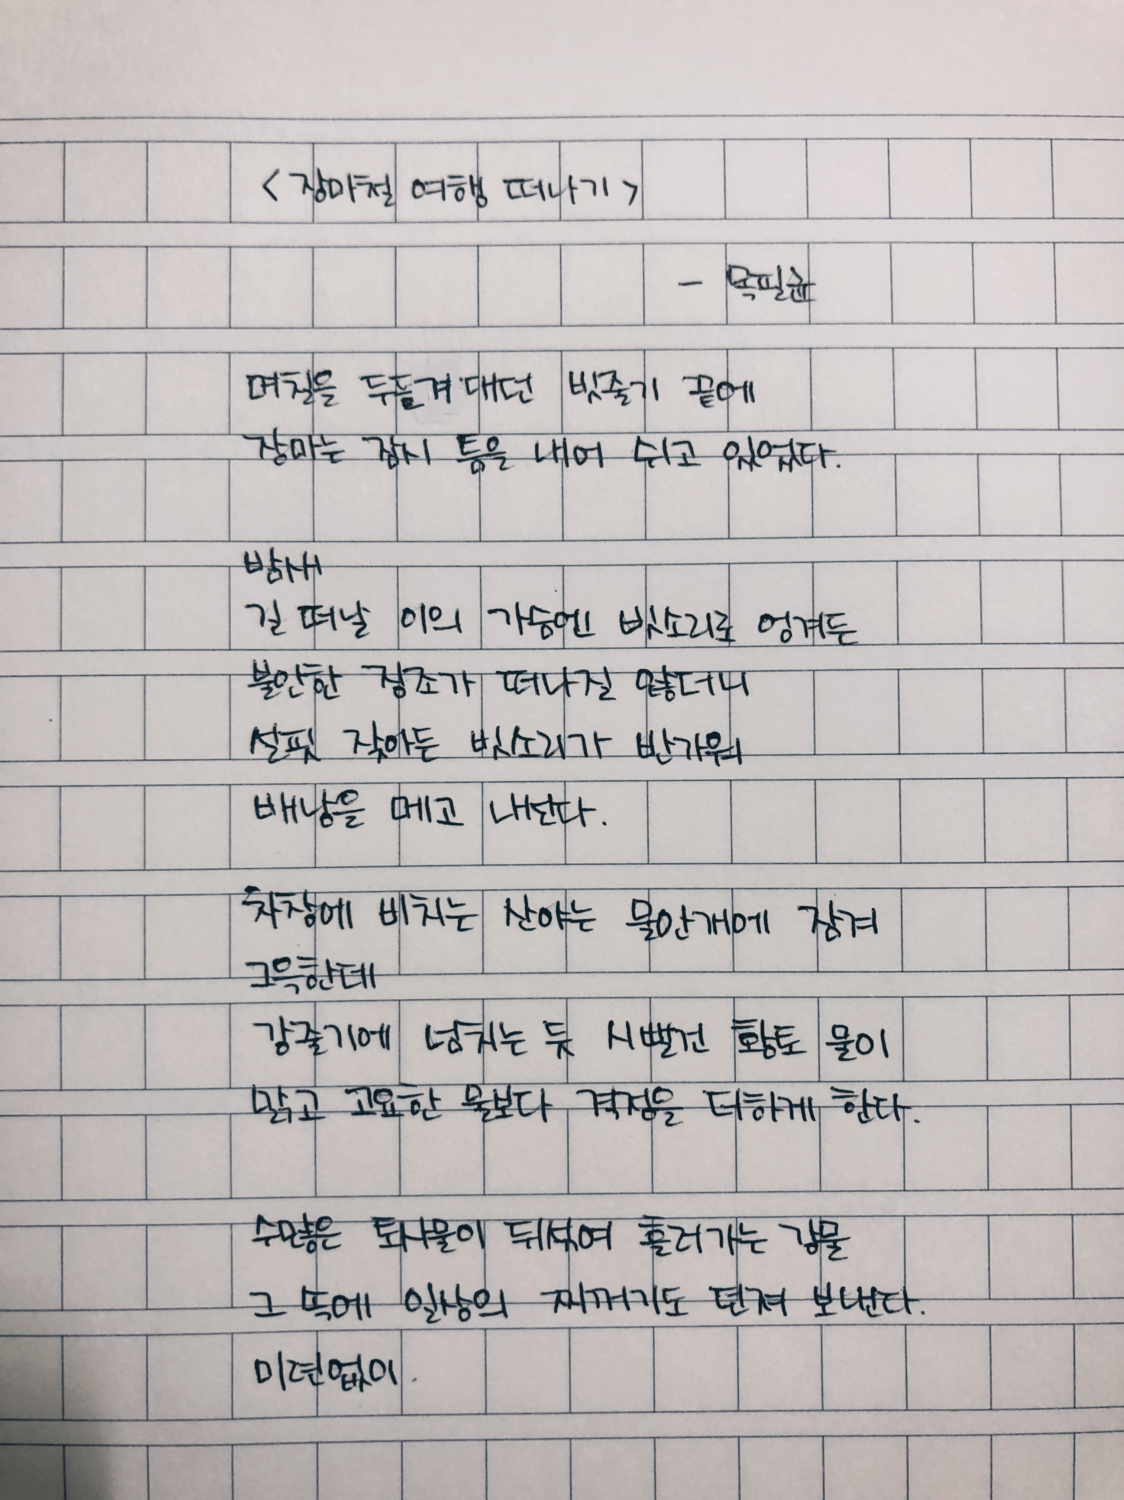 <장마철 여행 떠나기>
- 목필균
며칠을 두들겨 대던 빗줄기 끝에
장마는 잠시 틈을 내어 쉬고 있었다.
밤새
길 떠날 이의 가슴엔 빗소리로 엉겨든
불안한 징조가 떠나질 않더니
설핏 잦아든 빗소리가 반가워
배낭을 메고 내닫다.
차창에 비치는 산야는 물안개에 잠겨
그윽한데
강줄기에 넘치는 듯 시뻘건 황토 물이
맑고 고요한 물보다 격정을 더하게 한다.
수많은 토사물이 뒤섞여 흘러가는 강물
그 뚝에 일상의 찌꺼기도 던져 보낸다.
미련없이.